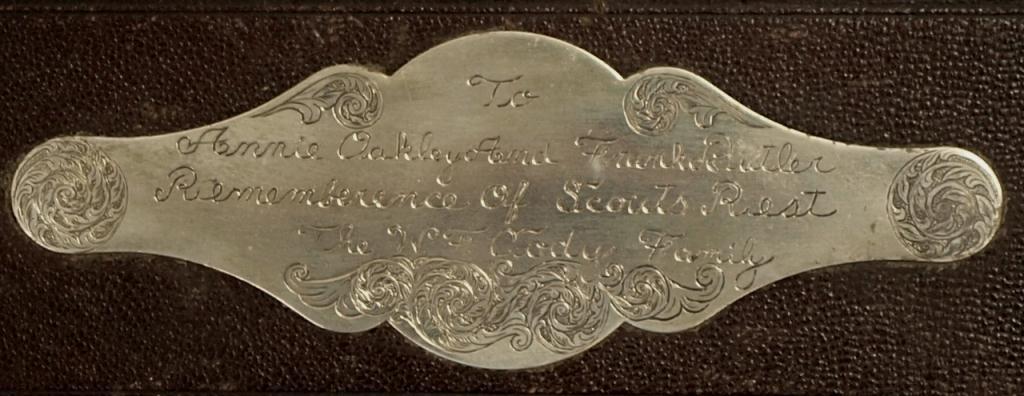 To
Annie Oakley And Frank Butler
Rememberence Of Scouts Rest
The W F Cody Family